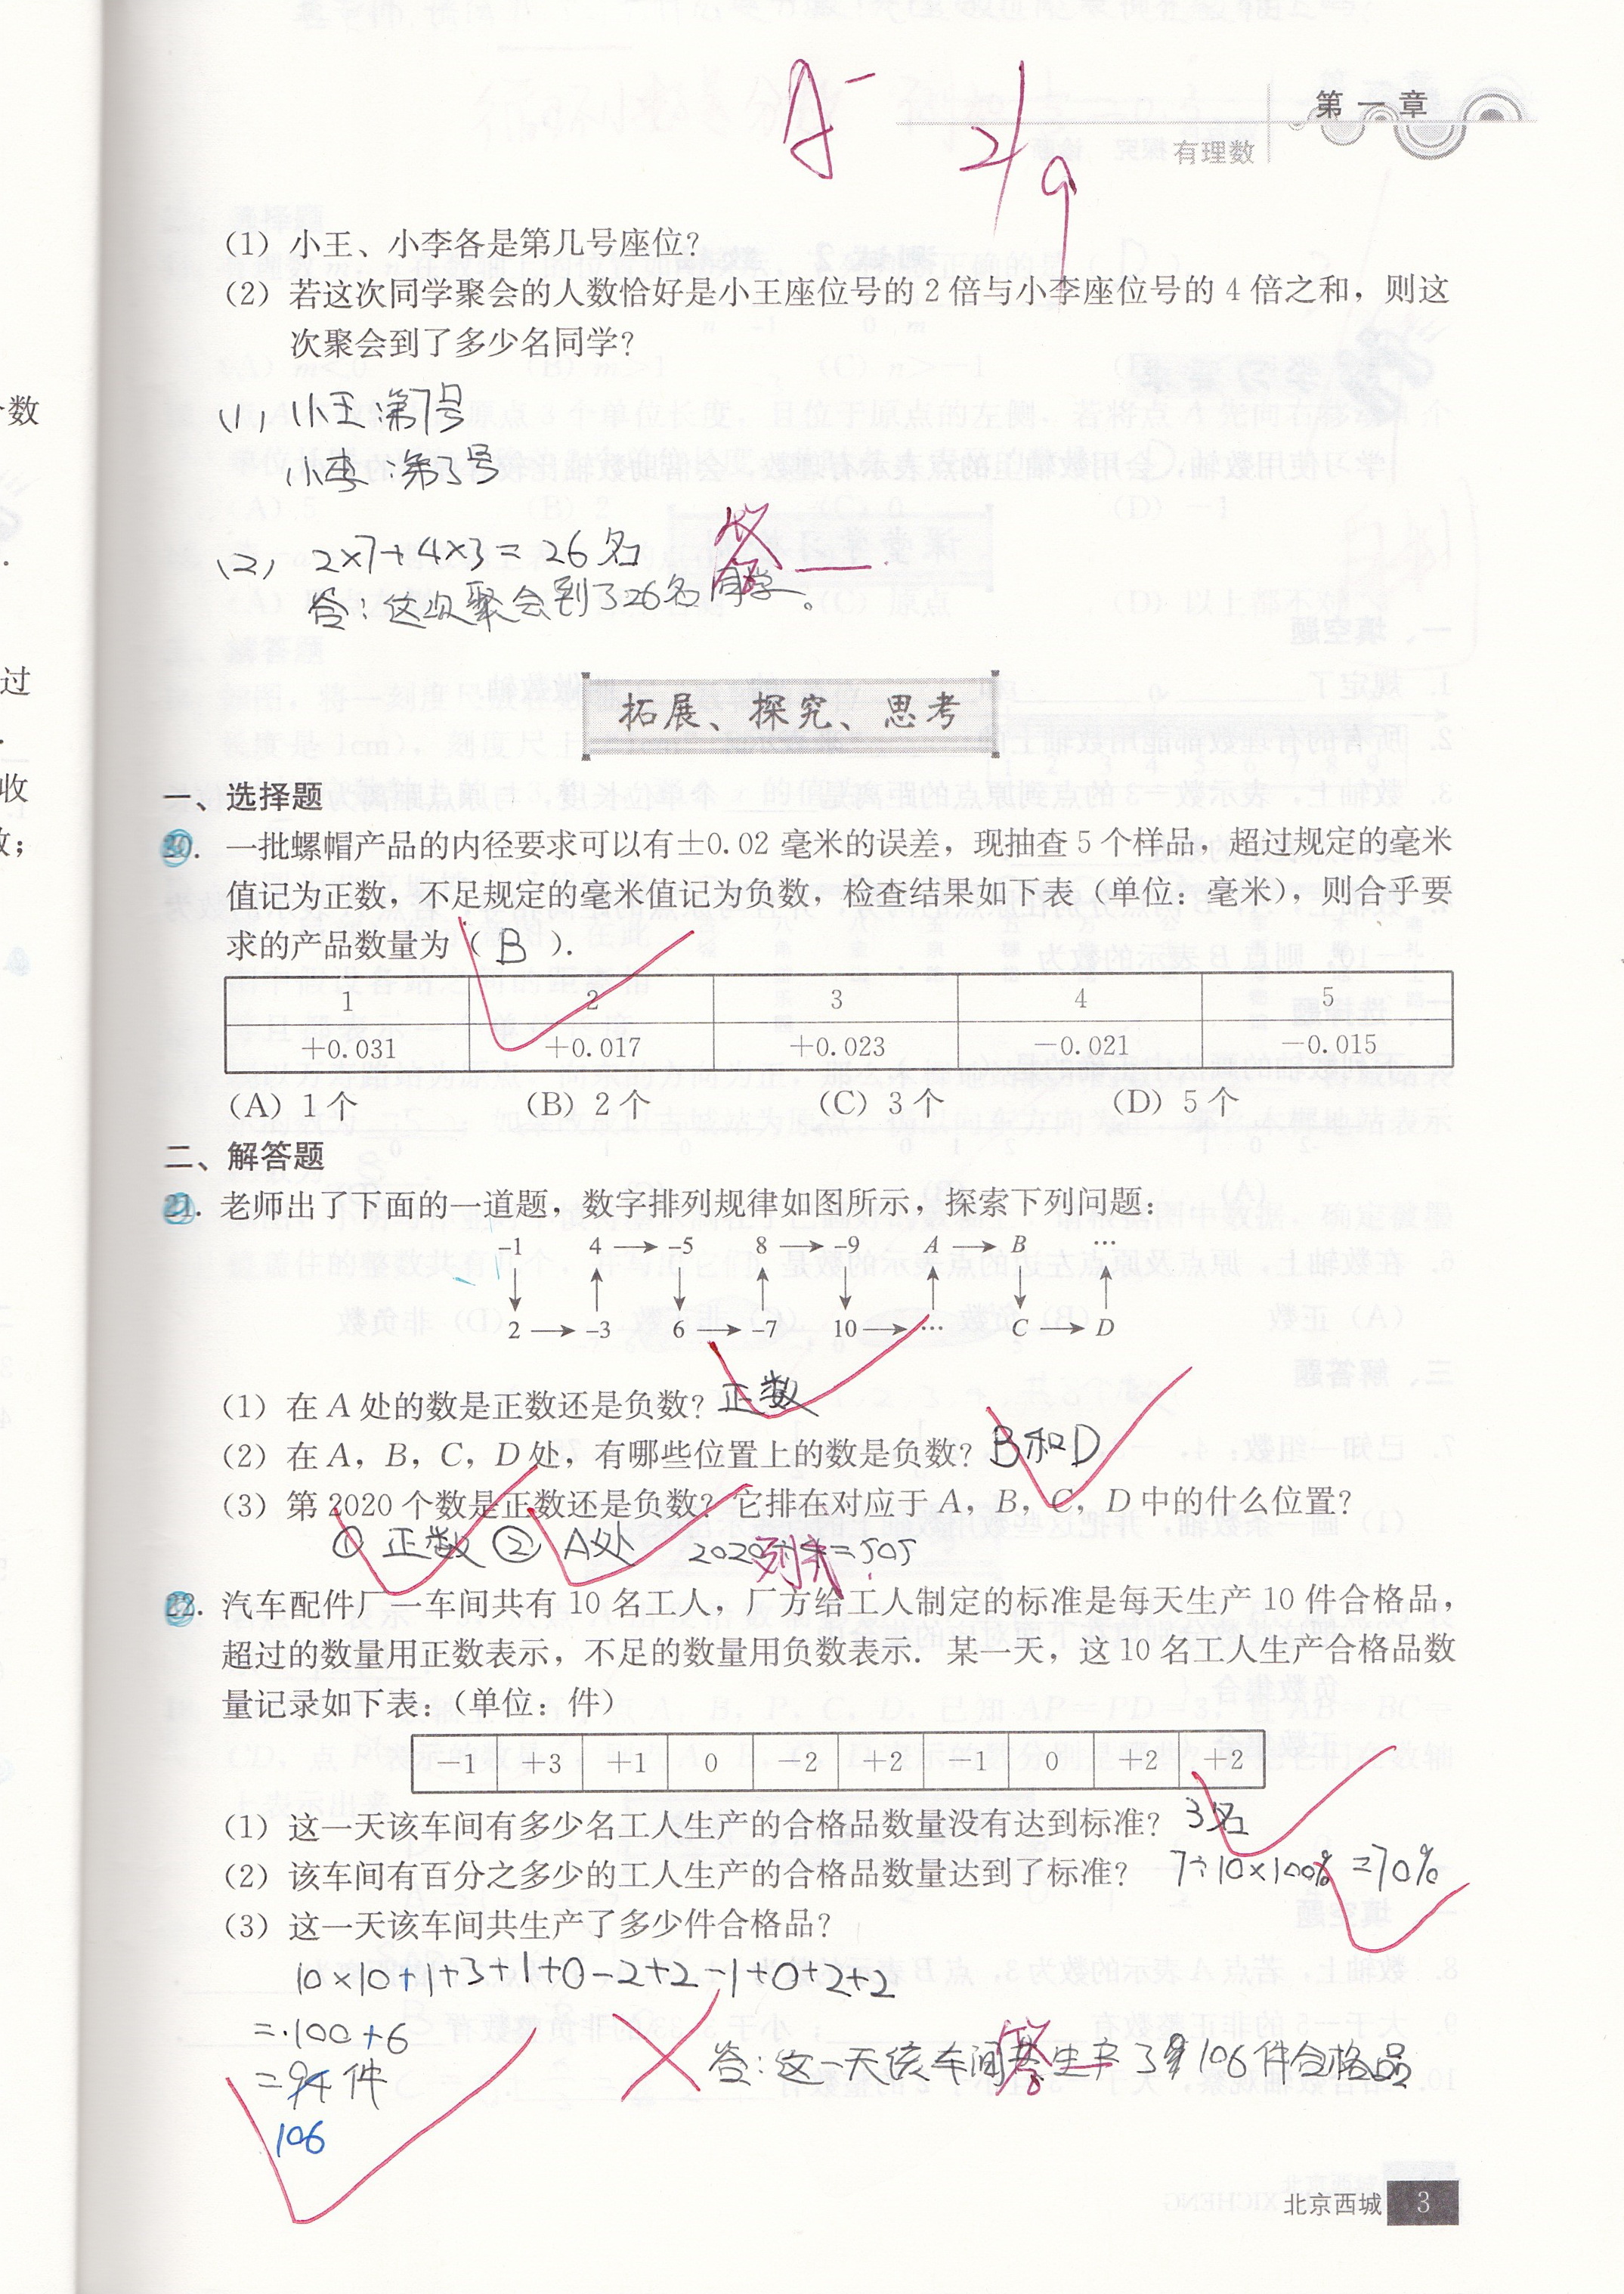 A⁻ 2/9
第一章
有理数
(1) 小王、小李各是第几号座位？
(2) 若这次同学聚会的人数恰好是小王座位号的 2 倍与小李座位号的 4 倍之和，则这
次聚会到了多少名同学？
(1) 小王:第7号
小李:第3号
(2) 2×7+4×3=26名
答
答：这次聚会到了26名同学。
拓展、探究、思考
一、选择题
20. 一批螺帽产品的内径要求可以有±0.02 毫米的误差，现抽查 5 个样品，超过规定的毫米
值记为正数，不足规定的毫米值记为负数，检查结果如下表（单位：毫米），则合乎要
求的产品数量为（ B ）．
1 2 3 4 5
+0.031 +0.017 +0.023 −0.021 −0.015
(A) 1 个 (B) 2 个 (C) 3 个 (D) 5 个
二、解答题
21. 老师出了下面的一道题，数字排列规律如图所示，探索下列问题：
-1 4 → -5 8 → -9 A → B …
↓ ↑ ↓ ↑ ↓ ↑ ↓ ↑
2 → -3 6 → -7 10 → … C → D
(1) 在 A 处的数是正数还是负数？正数
(2) 在 A，B，C，D 处，有哪些位置上的数是负数？B和D
(3) 第 2020 个数是正数还是负数？它排在对应于 A，B，C，D 中的什么位置？
① 正数 ② A处 2020÷4=505
列式
22. 汽车配件厂一车间共有 10 名工人，厂方给工人制定的标准是每天生产 10 件合格品，
超过的数量用正数表示，不足的数量用负数表示．某一天，这 10 名工人生产合格品数
量记录如下表：（单位：件）
−1 +3 +1 0 −2 +2 −1 0 +2 +2
(1) 这一天该车间有多少名工人生产的合格品数量没有达到标准？ 3名
(2) 该车间有百分之多少的工人生产的合格品数量达到了标准？ 7÷10×100%=70%
(3) 这一天该车间共生产了多少件合格品？
10×10+1+3+1+0-2+2-1+0+2+2
=100+6
=94件
106
答
答：这一天该车间共生产了106件合格品
北京西城 3